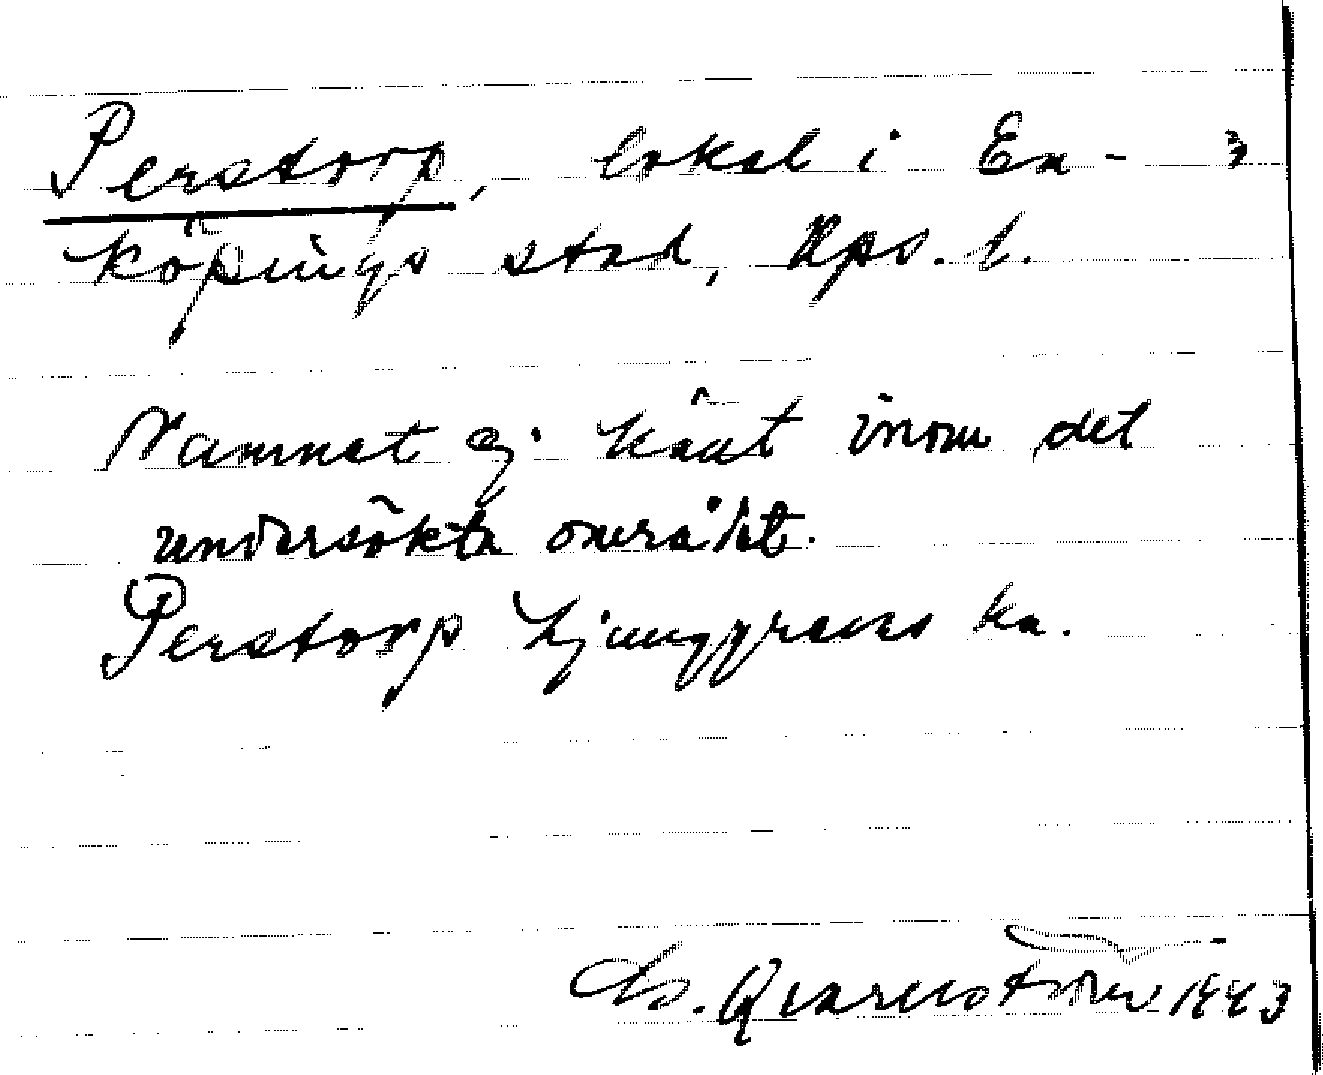 Perstorp, lokal i En- 3
köpings stad, Ups. l.
Namnet ej känt inom det
undersökta området.
Perstorp Ljunggrens ka.
Qvarnström 1943